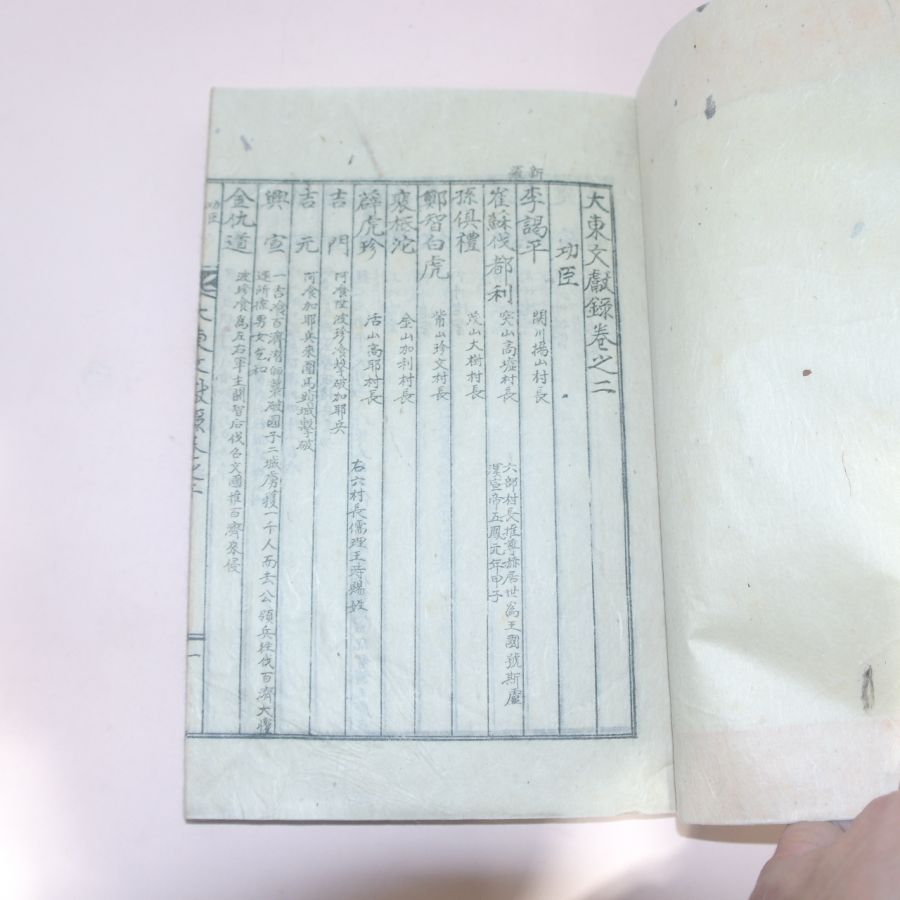 大東文獻錄卷之二
功臣
新羅
李謁平 閼川揚山村長
崔蘇伐都利 突山高墟村長 六部村長推尊赫居世爲王國號斯盧
漢宣帝五鳳元年甲子
孫俱禮 茂山大樹村長
鄭智白虎 觜山珍文村長
裵祗沱 金山加利村長
薛虎珍 活山高耶村長 右六村長儒理王時賜姓
吉門 阿飡陞波珍飡擊破加耶兵
吉元 阿飡加耶兵來圍馬頭城擊破
興宣 一吉飡百濟潛師襲破國予二城虜獲一千人而去公領兵往伐百濟大懼
還所掠男女乞和
金仇道 波珍飡爲左右軍主開智后伐召文國推百濟來侵
功臣
大東文獻錄卷之二
一